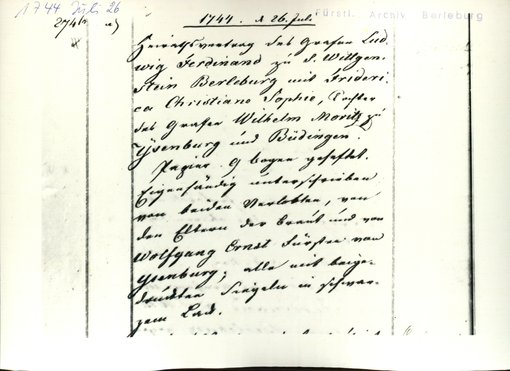 1744 Juli 26
1744. d 26. Jul.
Fürstl. Archiv Berleburg
Heirathsvertrag des Grafen Lud-
wig Ferdinand zu S. Wittgen-
stein Berleburg mit Frideri-
ca Christiane Sophie, Tochter
des Grafen Wilhelm Moritz zu
Ysenburg und Büdingen.
Papier 9 bogen geheftet.
Eigenhändig unterschrieben
von beiden Verlobten, von
den Eltern der Braut und von
Wolfgang Ernst Fürsten von
Ysenburg; alle mit beige-
druckten Siegeln in schwar-
zem Lack.